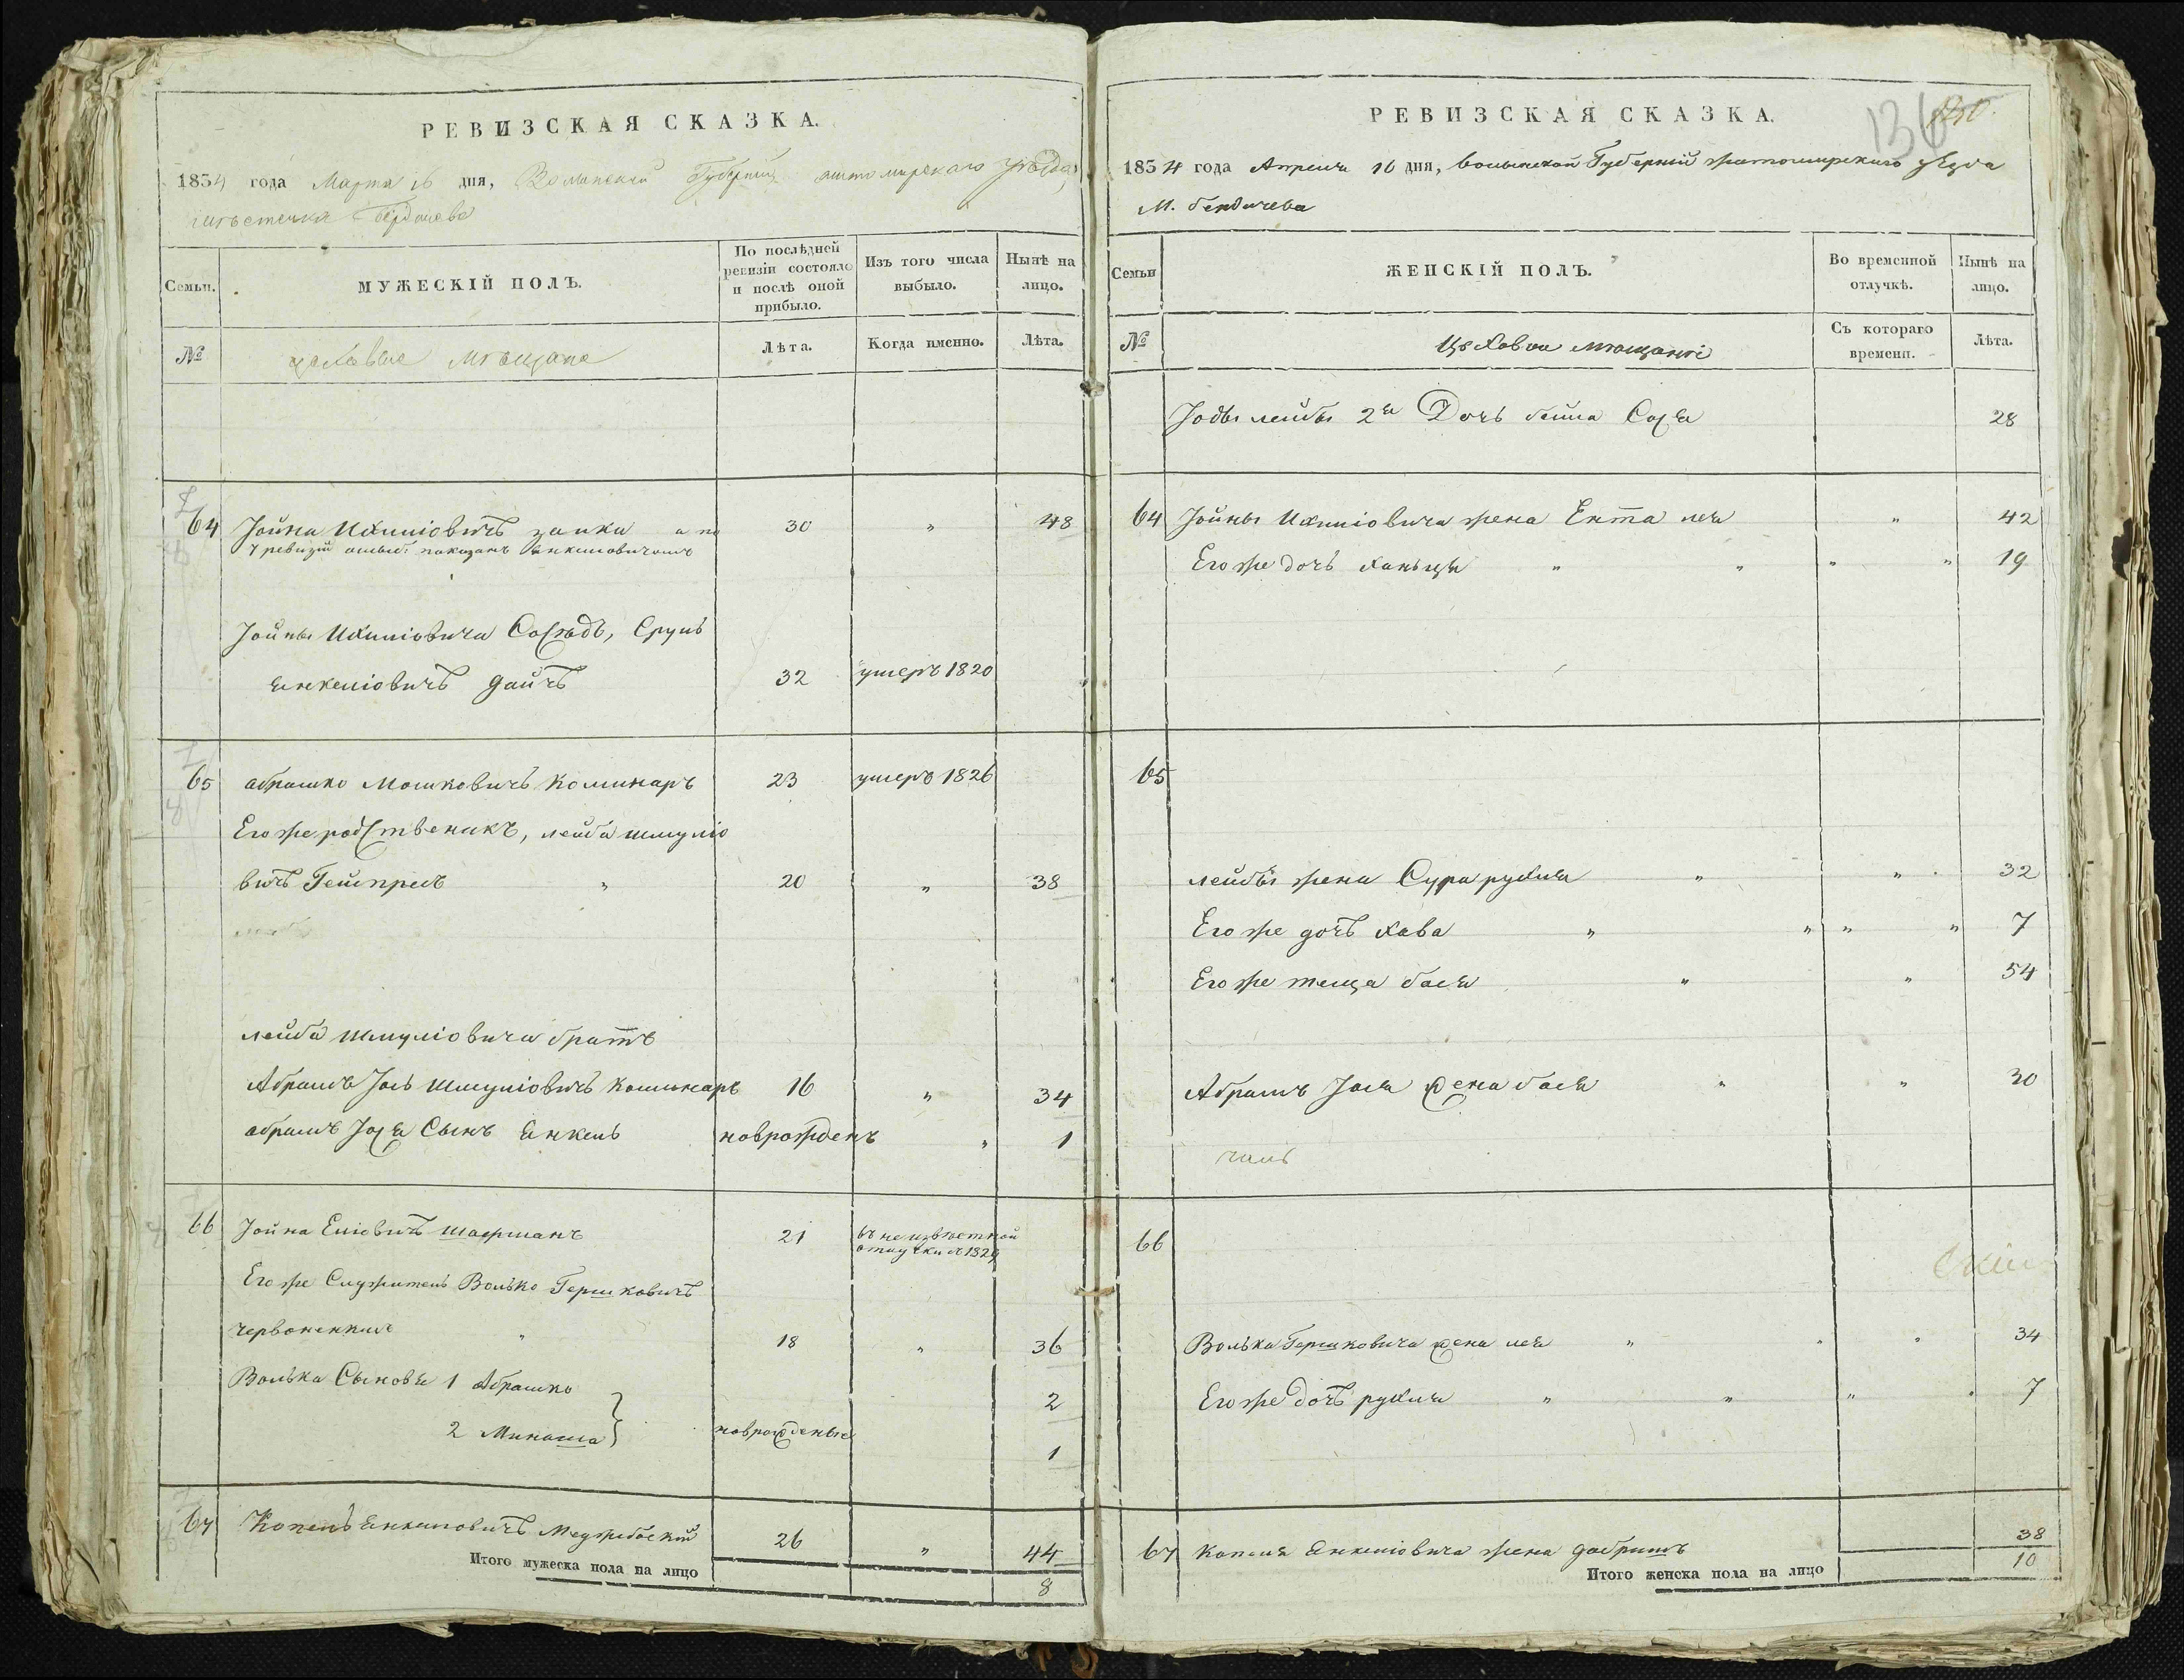 РЕВИЗСКАЯ СКАЗКА.
1834 года Марта 16 дня, Волынской Губерніи житомирскаго уѣзда,
мѣстечка Бердичева
Семьи.
МУЖЕСКІЙ ПОЛЪ.
По послѣдней ревизіи состояло и послѣ оной прибыло.
Изъ того числа выбыло.
Нынѣ на лицо.
№
цеховые мѣщане
Лѣта.
Когда именно.
Лѣта.
64 Іойна Ихиліовичъ заика а по 30 " 48
7 ревизіи ошиб: показанъ Янкиловичомъ
Іойны Ихиліовича Сосѣдъ, Сруль
Янкеліовичъ дайчъ 32 умеръ 1820
65 абрашко Мошковичъ Коминаръ 23 умеръ 1826
Его же родственикъ, лейба шмуліо
вичъ " 20 " 38
лейба шмуліовича братъ
Абрамъ Іось Шмуліовичъ Коминаръ 16 " 34
абрамъ Іося Сынъ Янкель новрожденъ " 1
66 Іойна Еліовичъ шафманъ 21 въ неизвѣстной
отлучки с 1829
Его же Служитель Волько Гершковичъ
" 18 " 36
Волька Сыновя 1 Абрашко 2
2 Минаша } новрожденые 1
67 Копель Янкеліовичъ Меджебоскій 26 " 44
Итого мужеска пола на лицо 8
136
РЕВИЗСКАЯ СКАЗКА.
1834 года Апреля 16 дня, Волынской Губерніи житомирского уезда
М. бердичева
Семьи
ЖЕНСКІЙ ПОЛЪ.
Во временной отлучкѣ.
Нынѣ на лицо.
№
Цеховіи мѣщанкі
Съ котораго времени.
Лѣта.
лейбы 2я Дочь бейла Сося 28
64 Іойны Ихиліовича жена Ента лея " 42
Его же дочь ханьця " " " " 19
65
лейбы жена Сура рухля " " 32
Его же дочъ хава " " " " 7
Его же теща бася " " 54
Абрамъ Іося жена бася " " 30
66
Волька Гершковича жена лея " " " 34
Его же дочъ рухля " " " " 7
67 Копеля Янкеліовича жена добришъ 38
Итого женска пола на лицо 10